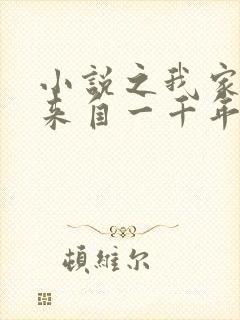 小説之我家
来自一千年
頓維尔